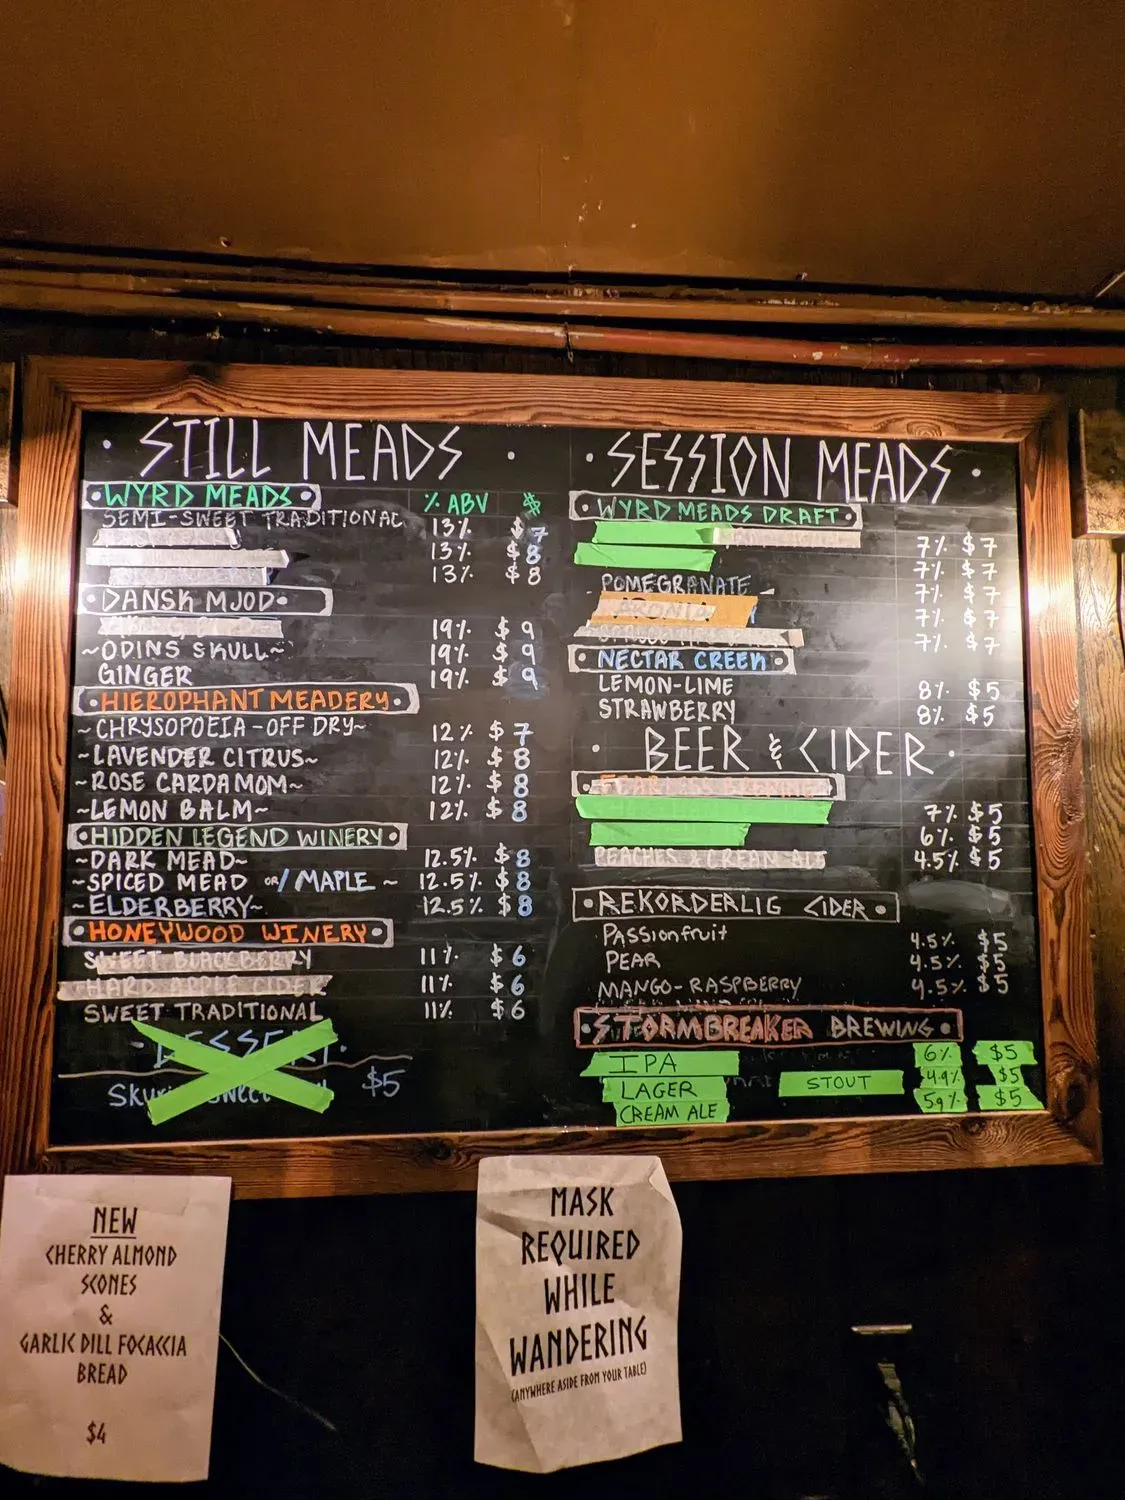 STILL MEADS
WYRD MEADS % ABV $
SEMI-SWEET TRADITIONAL 13% $7
13% $8
13% $8
DANSK MJOD
19% $9
~ODINS SKULL~ 19% $9
GINGER 19% $9
HIEROPHANT MEADERY
~CHRYSOPOEIA-OFF DRY~ 12% $7
~LAVENDER CITRUS~ 12% $8
~ROSE CARDAMOM~ 12% $8
~LEMON BALM~ 12% $8
HIDDEN LEGEND WINERY
~DARK MEAD~ 12.5% $8
~SPICED MEAD OR/MAPLE~ 12.5% $8
~ELDERBERRY~ 12.5% $8
HONEYWOOD WINERY
SWEET BLACKBERRY 11% $6
HARD APPLE CIDER 11% $6
SWEET TRADITIONAL 11% $6
DESSERT
$5
SESSION MEADS
WYRD MEADS DRAFT
7% $7
7% $7
POMEGRANATE 7% $7
7% $7
7% $7
NECTAR CREEK
LEMON-LIME 8% $5
STRAWBERRY 8% $5
BEER & CIDER
7% $5
6% $5
PEACHES & CREAM ALE 4.5% $5
REKORDERLIG CIDER
PASSIONfruit 4.5% $5
PEAR 4.5% $5
MANGO-RASPBERRY 4.5% $5
STORMBREAKER BREWING
IPA 6% $5
LAGER STOUT 4.9% $5
CREAM ALE 5.9% $5
NEW
CHERRY ALMOND
SCONES
&
GARLIC DILL FOCACCIA
BREAD
$4
MASK
REQUIRED
WHILE
WANDERING
(ANYWHERE ASIDE FROM YOUR TABLE)